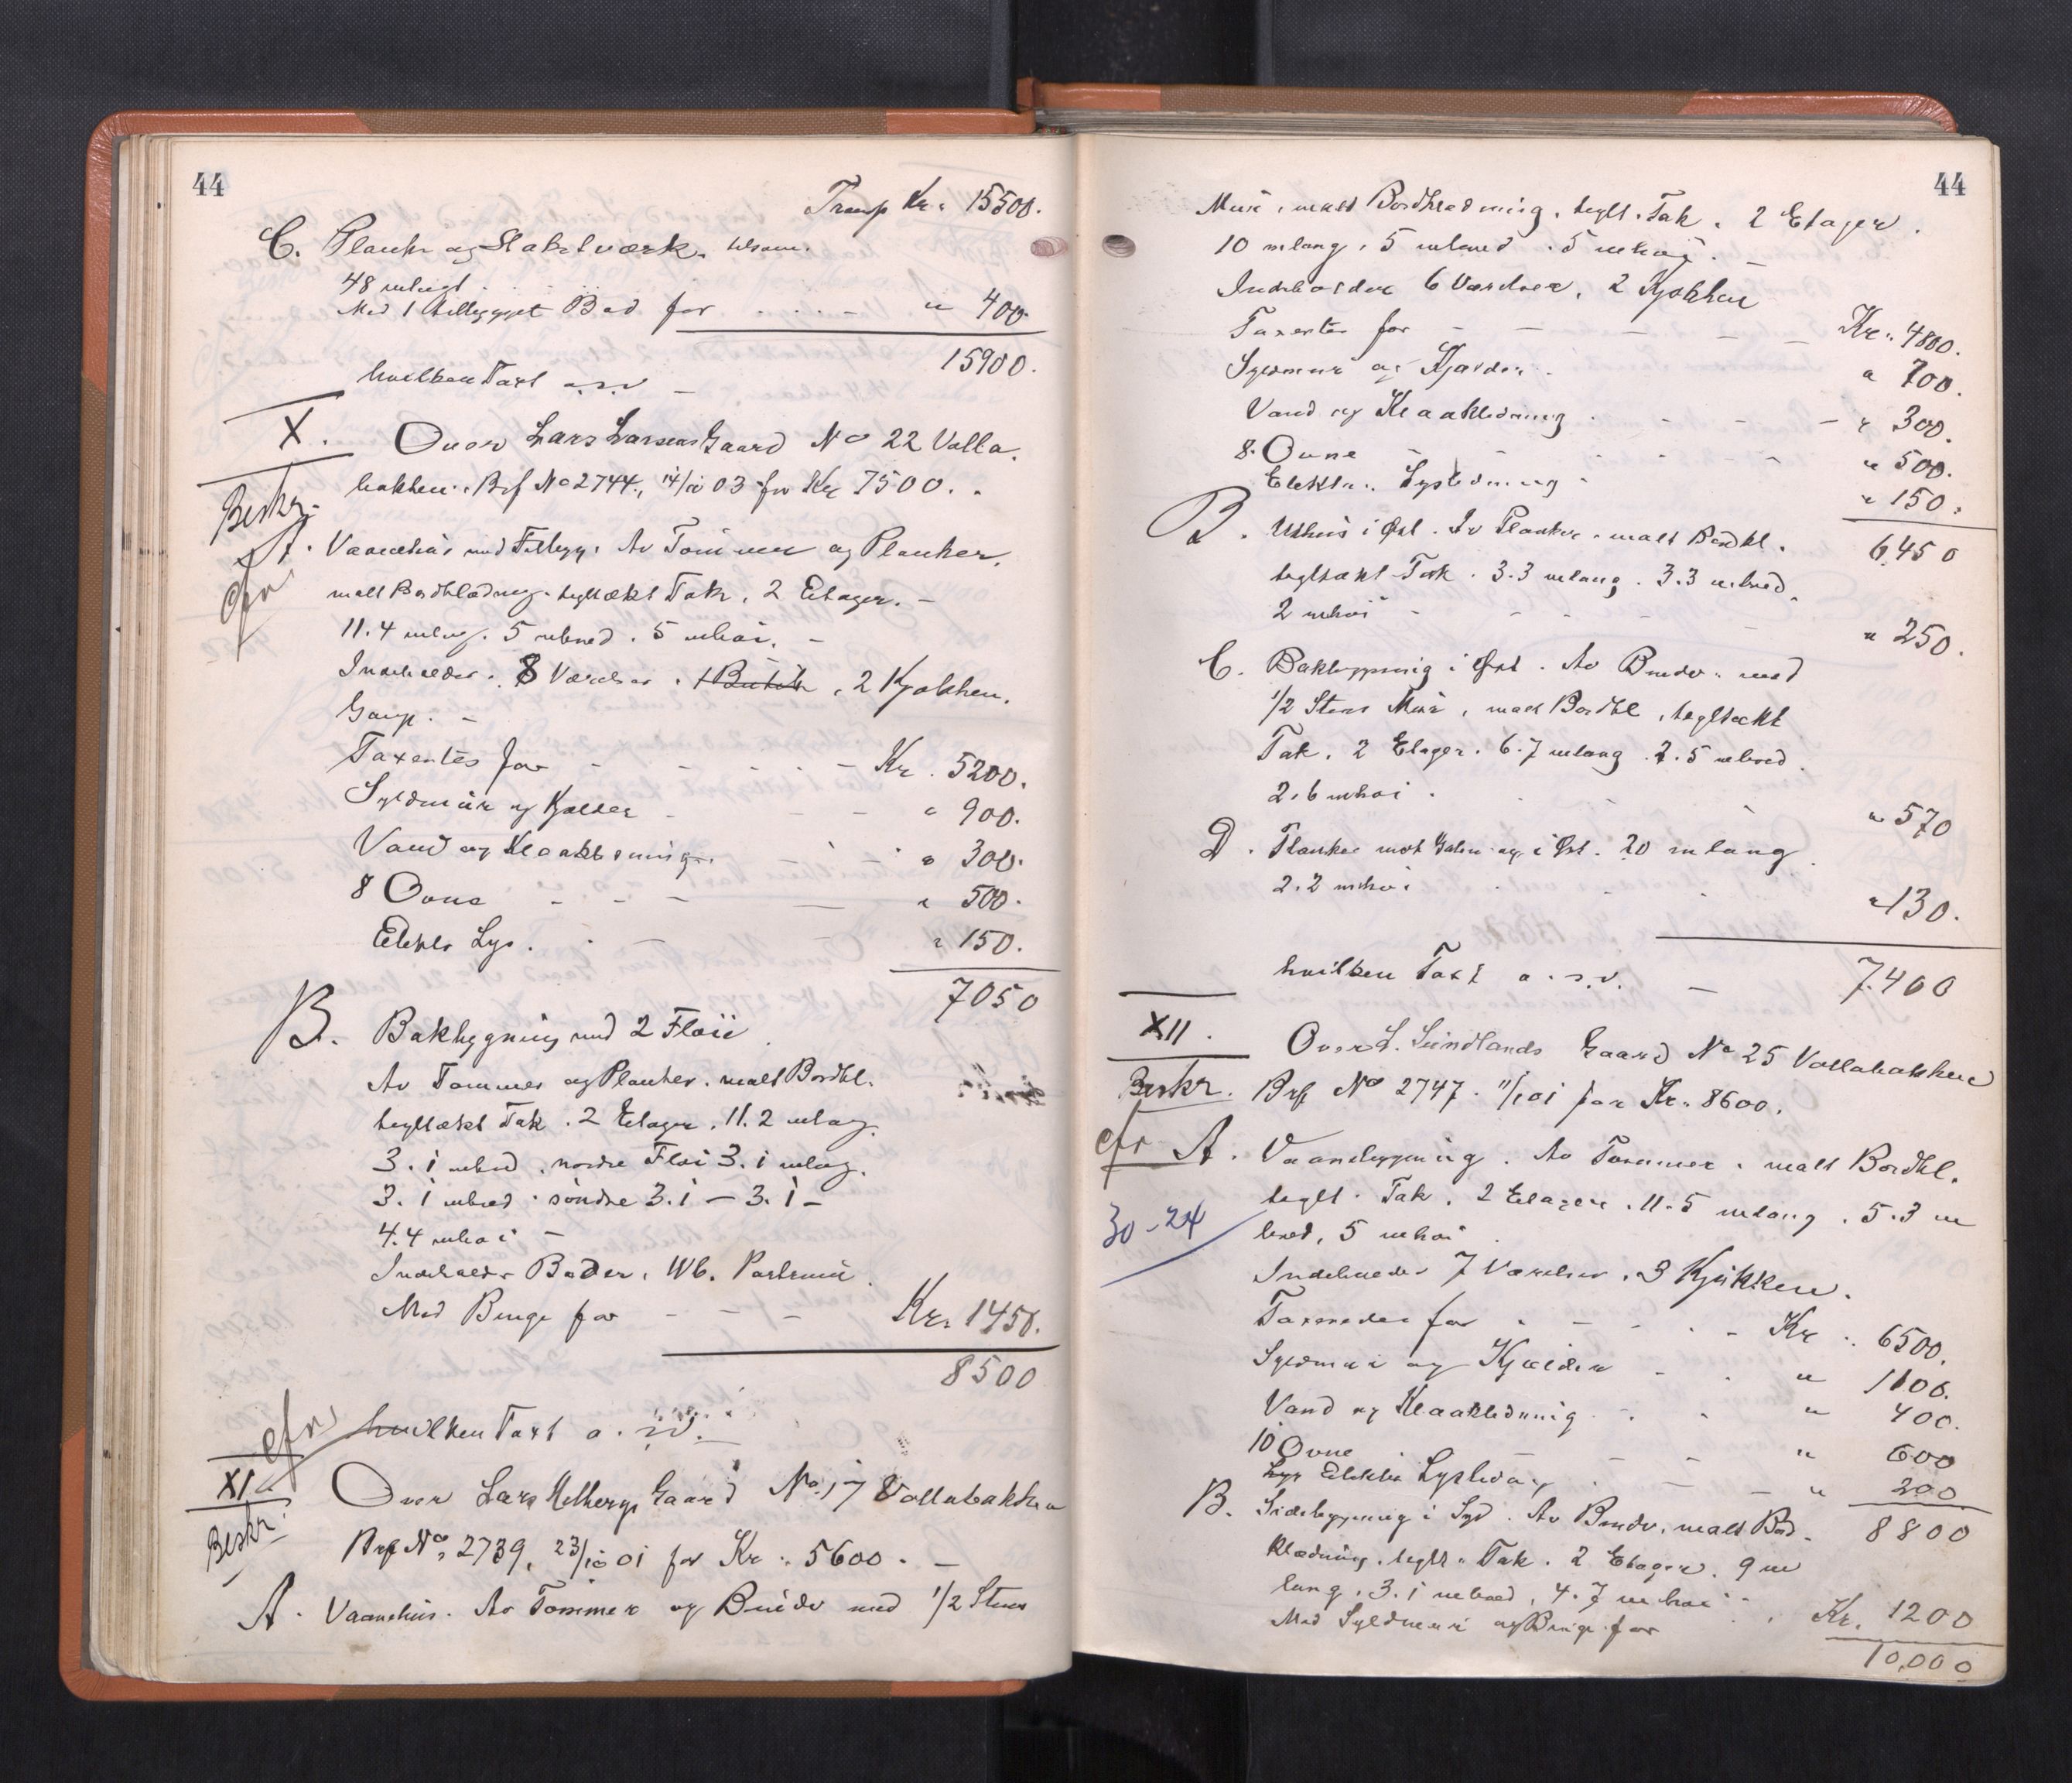 44
Transp Kr. 15500.
C. Planke og Stakitværk, tilsam.
48 m langt
Med 1 tilbygget Bod for " 400.
15900.
hvilken Taxt o.s.v. –
X. Over Lars Larsens Gaard No 22 Volla-
bakken. Brf No 2744, 14/10 03 for Kr 7500.
Beskr.
A. Vaanehus med Tilbygg. Av Tømmer og Planker,
cfr
malt Bordklædning, tegltækt Tak, 2 Etager. –
11.4 m lang. 5 m bred. 5 m høi. –
Indeholder. 8 Værelser. 2 Kjøkken.
Gang. –
Taxertes for – Kr. 5200.
Syldmur og Kjælder – " 900.
Vand og Kloakledning. – " 300.
8 Ovne – " 500.
Elektr Lys. – " 150.
7050
B. Bakbygning med 2 Fløie
Av Tømmer og Planker. malt Bordkl.
tegltækt Tak. 2 Etager. 11.2 m lang.
3.1 m bred. nordre Fløi 3.1 m lang.
3.1 m bred. søndre 3.1 – 3.1 –
4.4 m høi –
Indeholder Boder, Wc.
Med Binge for – Kr. 1450.
8500
cfr
hvilken Taxt o.s.v. –
XI. Over Lars Melbergs Gaard No 17 Vollabakken
Beskr.
Brf No. 2739, 23/10 01 for Kr. 5600. –
A. Vaanehus. Av Tømmer og Bindv med 1/2 Stens
44
Mur, malt Bordklædning, teglt. Tak. 2 Etager.
10 m lang. 5 m bred. 5 m høi. –
Indeholder 6 Værelser, 2 Kjøkken
Taxertes for – Kr. 4800.
Syldmur og Kjælder. " 700.
Vand og Kloakledning – " 300.
8 Ovne – " 500.
Elektr. Lysledning " 150.
6450
B. Uthus i Øst. Av Planker, malt Bordkl.
tegltækt Tak. 3.3 m lang. 3.3 m bred.
2 m høi – " 250.
C. Bakbygning i Øst. Av Bindv. med
1/2 Stens Mur, malt Bordkl, tegltækt
Tak. 2 Etager. 6.7 m lang. 2.5 m bred.
2.6 m høi. " 570
D. Planke mot Gaten og i Øst. 20 m lang
2.2 m høi " 130.
hvilken Taxt o.s.v. – 7.400
XII. Over L. Sundlands Gaard No 25 Vollabakken
Beskr. Brf No 2747. 11/1 01 for Kr. 8600.
cfr A. Vaanebygning. Av Tømmer, malt Bordkl.
30-24
teglt. Tak. 2 Etager. 11.5 m lang. 5.3 m
bred, 5 m høi
Indeholder 7 Værelser, 3 Kjøkken.
Taxeredes for – Kr. 6500.
Syldmur og Kjælder " 1100.
Vand og Kloakledning " 400.
10 Ovne – " 600
Elektr Lysledng – " 200
8800
B. Sidebygning i Syd. Av Bindv. malt Bord-
klædning, teglt. Tak. 2 Etager. 9 m
lang, 3.1 m bred, 4.7 m høi
Med Syldmur og Binge for Kr. 1200
10,000